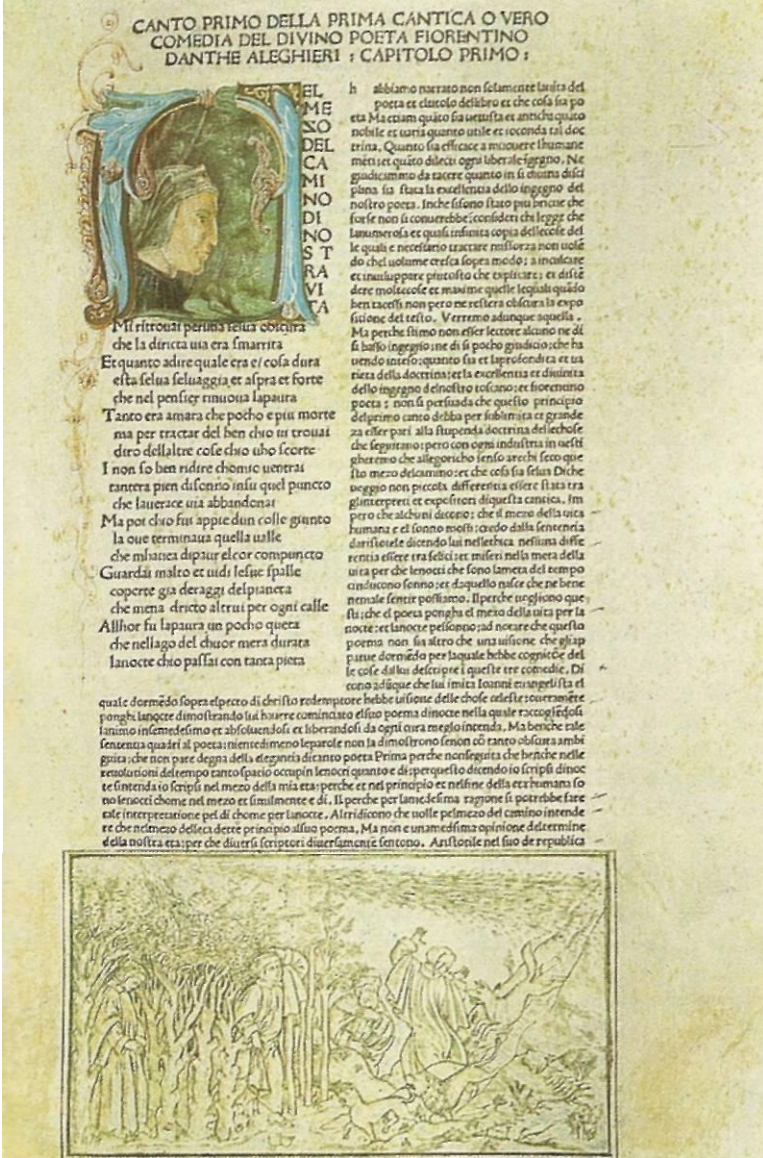 CANTO PRIMO DELLA PRIMA CANTICA O VERO
COMEDIA DEL DIVINO POETA FIORENTINO
DANTHE ALEGHIERI : CAPITOLO PRIMO :
EL
ME
ZO
DEL
CA
MI
NO
DI
NO
S T
RA
VI
TA
Mi ritrouai per una selua obscura
che la diricta uia era smarrita
Et quanto adire quale era e/ cosa dura
esta selua seluaggia et aspra et forte
che nel pensier rinuoua lapaura
Tanto era amara che pocho e piu morte
ma per tractar del ben chio ui trouai
diro dellaltre cose chio uho scorte
I non so ben ridire chomio uentrai
tantera pien disonno insu quel puncto
che lauerace uia abbandonai
Ma poi chio fui appie dun colle giunto
la oue terminaua quella ualle
che mhauea dipaur el cor compuncto
Guardai in alto et uidi lesue spalle
coperte gia deraggi delpianeta
che mena dricto altrui per ogni calle
Allhor fu lapaura un pocho queta
che nellago del chuor mera durata
lanocte chio passai con tanta pieta
h abbiamo narrato non solamente lauita del
poeta et eltitolo dellibro et che cosa sia po
eta Ma etiam quãto sia uetusta et anticha quãto
nobile et uaria quanto utile et ioconda tal doc
trina. Quanto sia efficace a muouere lhumane
menti et quãto dilecti ogni liberale ĩgegno. Ne
giudicammo da tacere quanto in si diuina disci
plina sia stata la excellentia dello ingegno del
nostro poeta. Inche sisono stato piu brieue che
forse non si conuerebbe: consideri chi legge che
lanumerosa et quasi infinita copia dellecose del
le quali e necessario tractare misforza non uolẽ
do chel uolume cresca sopra modo: a inculcare
et inuiluppare piutosto che explicare: et distẽ
dere moltecose et maxime quelle lequali quãdo
ben tacessi non pero ne restera obscura la expo
sitione del testo. Verremo adunque aquella.
Ma perche stimo non esser lectore alcuno ne di
si basso ingegno: ne di si pocho giudicio: che ha
uendo inteso: quanto sia et laprofondita et ua
rieta della doctrina: et la excellentia et diuinita
dello ingegno delnostro toscano: et fiorentino
poeta: non si persuada che questo principio
delprimo canto debba per sublimita et grande
za esser pari alla stupenda doctrina dellechose
che seguitano: pero con ogni industria inuesti
gheremo che allegoricho senso arechi seco que
sto mezo delcamino: et che cosa sia selua Diche
ueggio non piccola differentia essere stata tra
glinterpreti et expositori diquesta cantica. Im
pero che alchuni dicono: che il mezo della uita
humana e el sonno mossi: credo dalla sententia
daristotele dicendo lui nellethica nessuna diffe
rentia essere tra felici: et miseri nella meta della
uita per che lenocti che sono lameta del tempo
cinducono sonno: et daquello nasce che ne bene
nemale sentir possiamo. Il perche uogliono que
sti: che el poeta pongha el mezo della uita per la
nocte: et lanocte pelsonno: ad notare che questo
poema non sia altro che una uisione che gliap
parue dormẽdo per laquale hebbe cognitiõe del
le cose dallui descripte ĩ queste tre comedie. Di
cono adũque che lui imita Ioanni euangelista el
quale dormẽdo sopra elpecto di christo redemptore hebbe uisione delle chose celeste: oueramẽte
ponghi lanocte dimostrando lui hauere cominciato elsuo poema dinocte nella quale raccogliẽdosi
lanimo insemedesimo et absoluendosi et liberandosi da ogni cura meglo intenda. Ma benche tale
sententia quadri al poeta: nientedimeno leparole non la dimostrono senon cõ tanto obscura ambi
guita: che non pare degna della elegantia ditanto poeta Prima perche nonseguita che benche nelle
reuolutioni deltempo tanto spatio occupin lenocti quanto e di: perquesto dicendo io scripsi dinoc
te sintenda io scripsi nel mezo della mia eta: perche et nel principio et nelfine della eta humana so
no lenocti chome nel mezo et similmente e di. Il perche per lamedesima ragione si potrebbe fare
tale interpretatione pel di chome per lanocte. Altri dicono che uolle pelmezo del camino intende
re che nelmezo delleta dette principio alsuo poema. Ma non e unamedesima opinione deltermine
della nostra eta: per che diuersi scriptori diuersamente sentono. Aristotile nel suo de republica